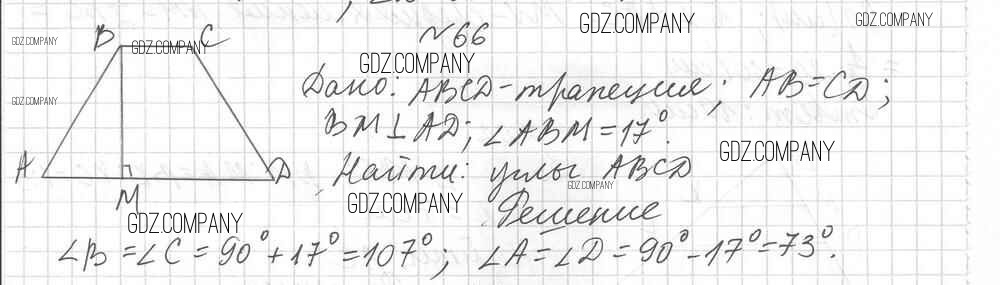 №66
Дано: ABCD-трапеция; AB=CD;
BM⊥AD; ∠ABM=17°.
Найти: углы ABCD
Решение
∠B=∠C=90°+17°=107°; ∠A=∠D=90°-17°=73°.
B C
A M D
GDZ.COMPANY
GDZ.COMPANY
GDZ.COMPANY
GDZ.COMPANY
GDZ.COMPANY
GDZ.COMPANY
GDZ.COMPANY
GDZ.COMPANY
GDZ.COMPANY
GDZ.COMPANY